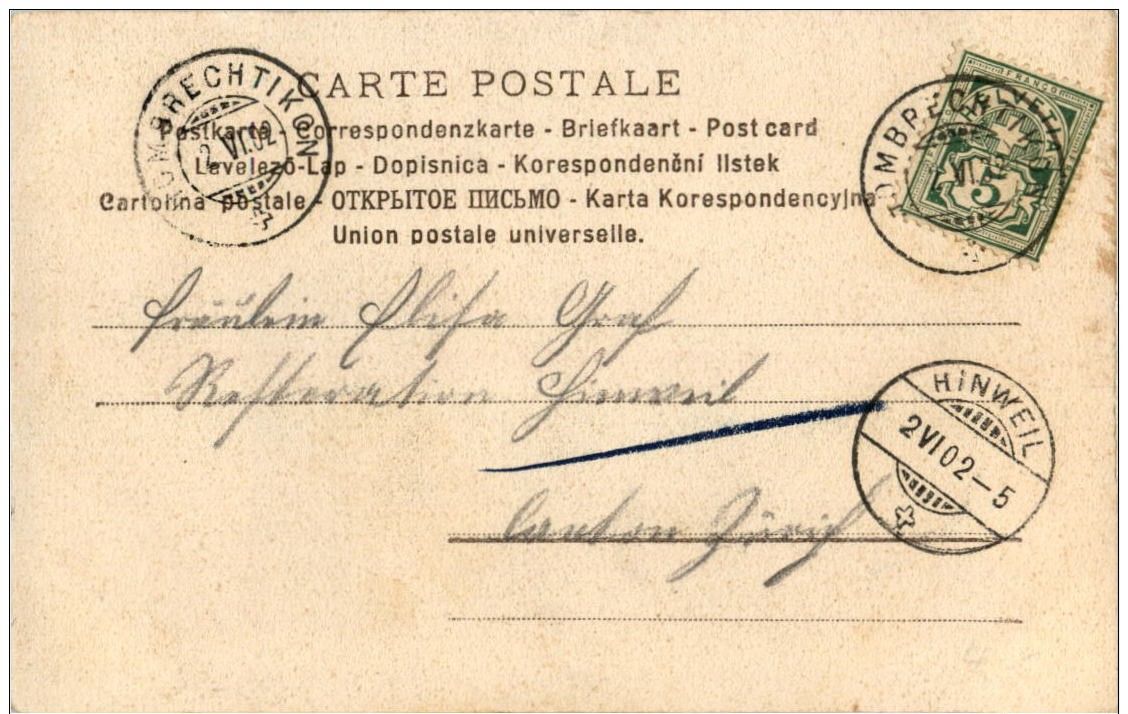 CARTE POSTALE
Postkarte - Correspondenzkarte - Briefkaart - Post card
Levelező-Lap - Dopisnica - Korespondenční lístek
Cartolina postale - ОТКРЫТОЕ ПИСЬМО - Karta Korespondencyjna
Union postale universelle.
HOMBRECHTIKON
2 VI.02
HOMBRECHTIKON
VI.02
HELVETIA
FRANCO
5
Fräulein Elisa Graf
Restoration Hinweil
Canton Zürich
HINWEIL
2 VI 02 - 5